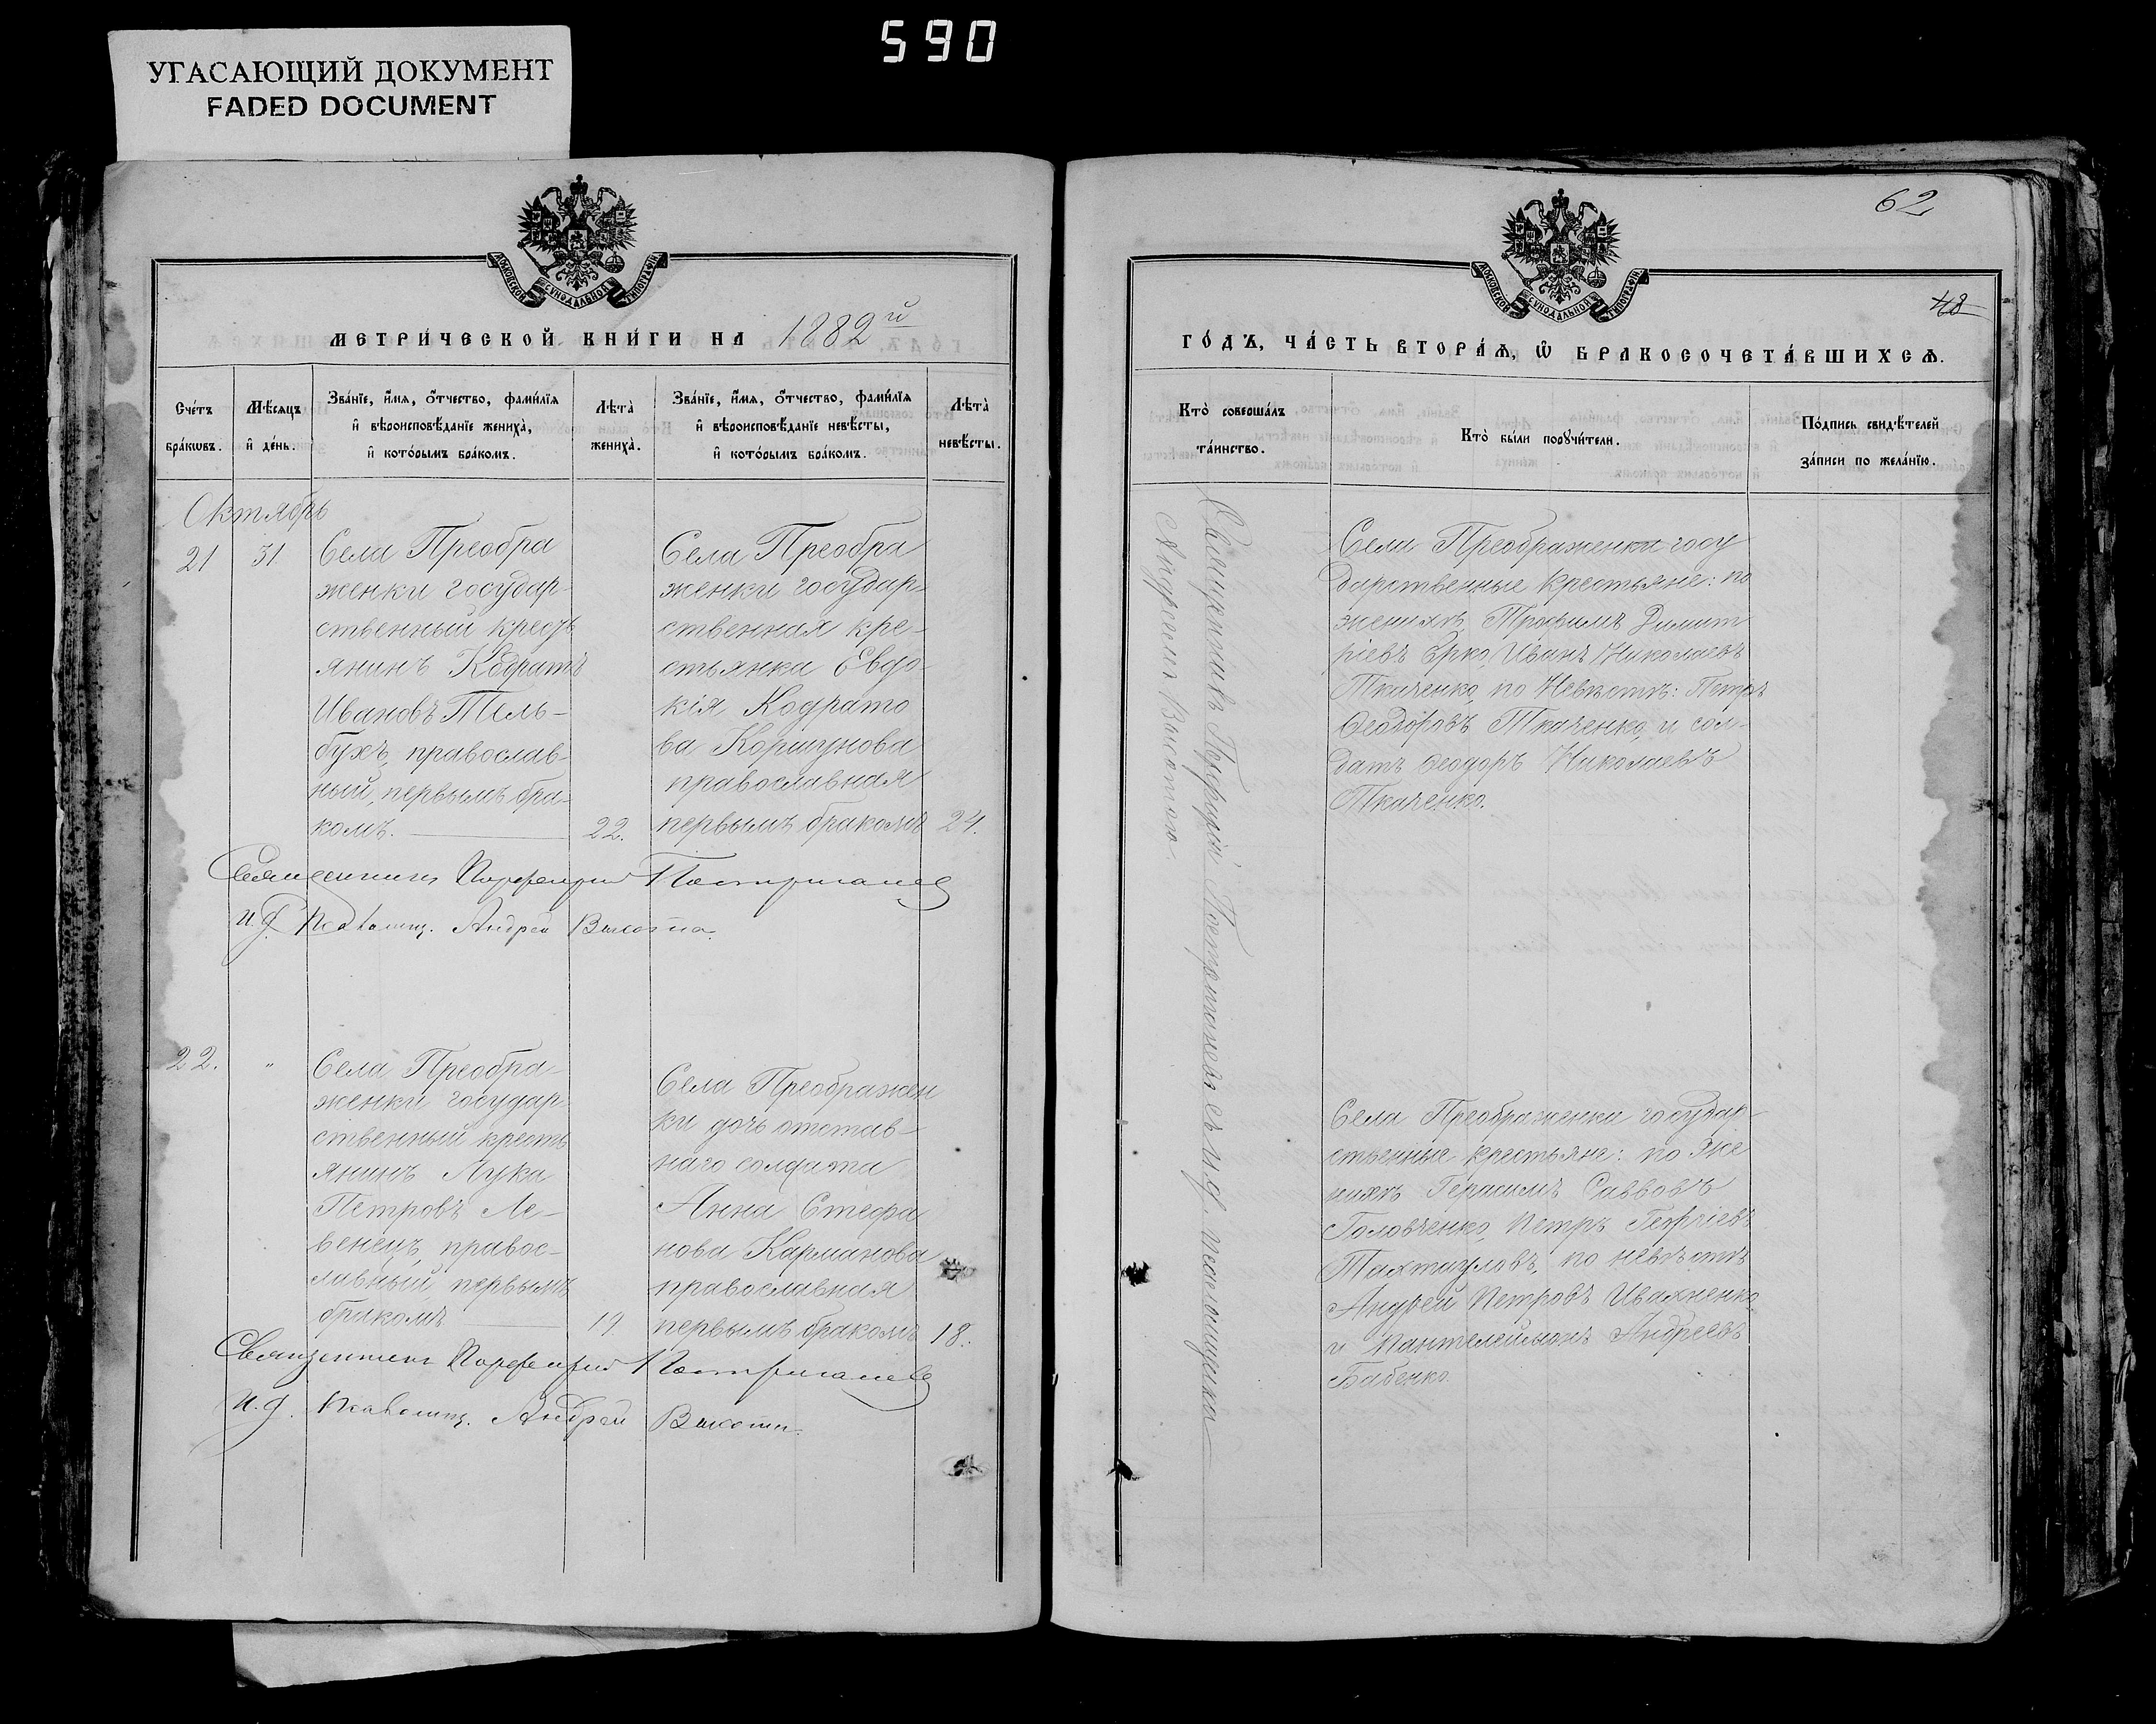 590
УГАСАЮЩИЙ ДОКУМЕНТ
FADED DOCUMENT
МОСКОВСКОЙ СѴНОДАЛЬНОЙ ТИПОГРАФІИ
МЕТРИ́ЧЕСКОЙ КНИ́ГИ НА 1882й
Сче́тъ
бра́кѡвъ.
Мѣ́сяцъ
и҆ де́нь.
Зва́нїе, и҆́мѧ, ѻ҆́тчество, фами́лїѧ
и҆ вѣроисповѣ́данїе жениха̀,
и҆ кото́рымъ бра́комъ.
Лѣта̀
жениха̀.
Зва́нїе, и҆́мѧ, ѻ҆́тчество, фами́лїѧ
и҆ вѣроисповѣ́данїе невѣ́сты,
и҆ кото́рымъ бра́комъ.
Лѣта̀
невѣ́сты.
Октябрь
21
31.
Села Преобра
женки государ-
ственный кресть
янинъ Кодратъ
Ивановъ Тель-
бухъ, православ-
ный, первымъ бра-
комъ.
22.
Села Преобра
женки государ-
ственная кре-
стьянка Евдо-
кія Кодрато
ва Коршунова
православная
первымъ бракомъ
24.
Священникъ Порфирій
и. д. Псаломщ. Андрей Высота.
22.
"
Села Преобра-
женки государ-
ственный кресть
янинъ Лука
Петровъ Ле-
венецъ, правос-
лавный первымъ
бракомъ
19.
Села Преображен
ки дочь отстав-
наго солдата
Анна Стефа
нова Карманова
православная
первымъ бракомъ
18.
Священникъ Порфирій
И. д. Псаломщ. Андрей Высота.
62
48
МОСКОВСКОЙ СѴНОДАЛЬНОЙ ТИПОГРАФІИ
ГО́ДЪ, ЧА́СТЬ ВТОРА́Ѧ, Ѡ҆ БРАКОСОЧЕТА́ВШИХСѦ.
Кто̀ соверша́лъ
та́инство.
Кто̀ бы́ли порꙋчи́тели.
По́дпись свидѣ́телей
за́писи по жела́нїю.
Священникъ Порфирій съ и. д. псаломщика
Андреемъ Высотою.
Села Преображенки госу
дарственные крестьяне: по
женихѣ Трофимъ Димит
ріевъ Ерко, Иванъ Николаевъ
Ткаченко, по Невѣстѣ: Петръ
Ѳеодоровъ Ткаченко, и сол-
датъ Ѳеодоръ Николаевъ
Ткаченко.
Села Преображенки государ-
ственные крестьяне: по Же
нихѣ Герасимъ Саввовъ
Головченко, Петръ Георгіевъ
по невѣстѣ
Андрей Петровъ Ивахненко
и Пантелеймонъ Андреевъ
Бабенко.